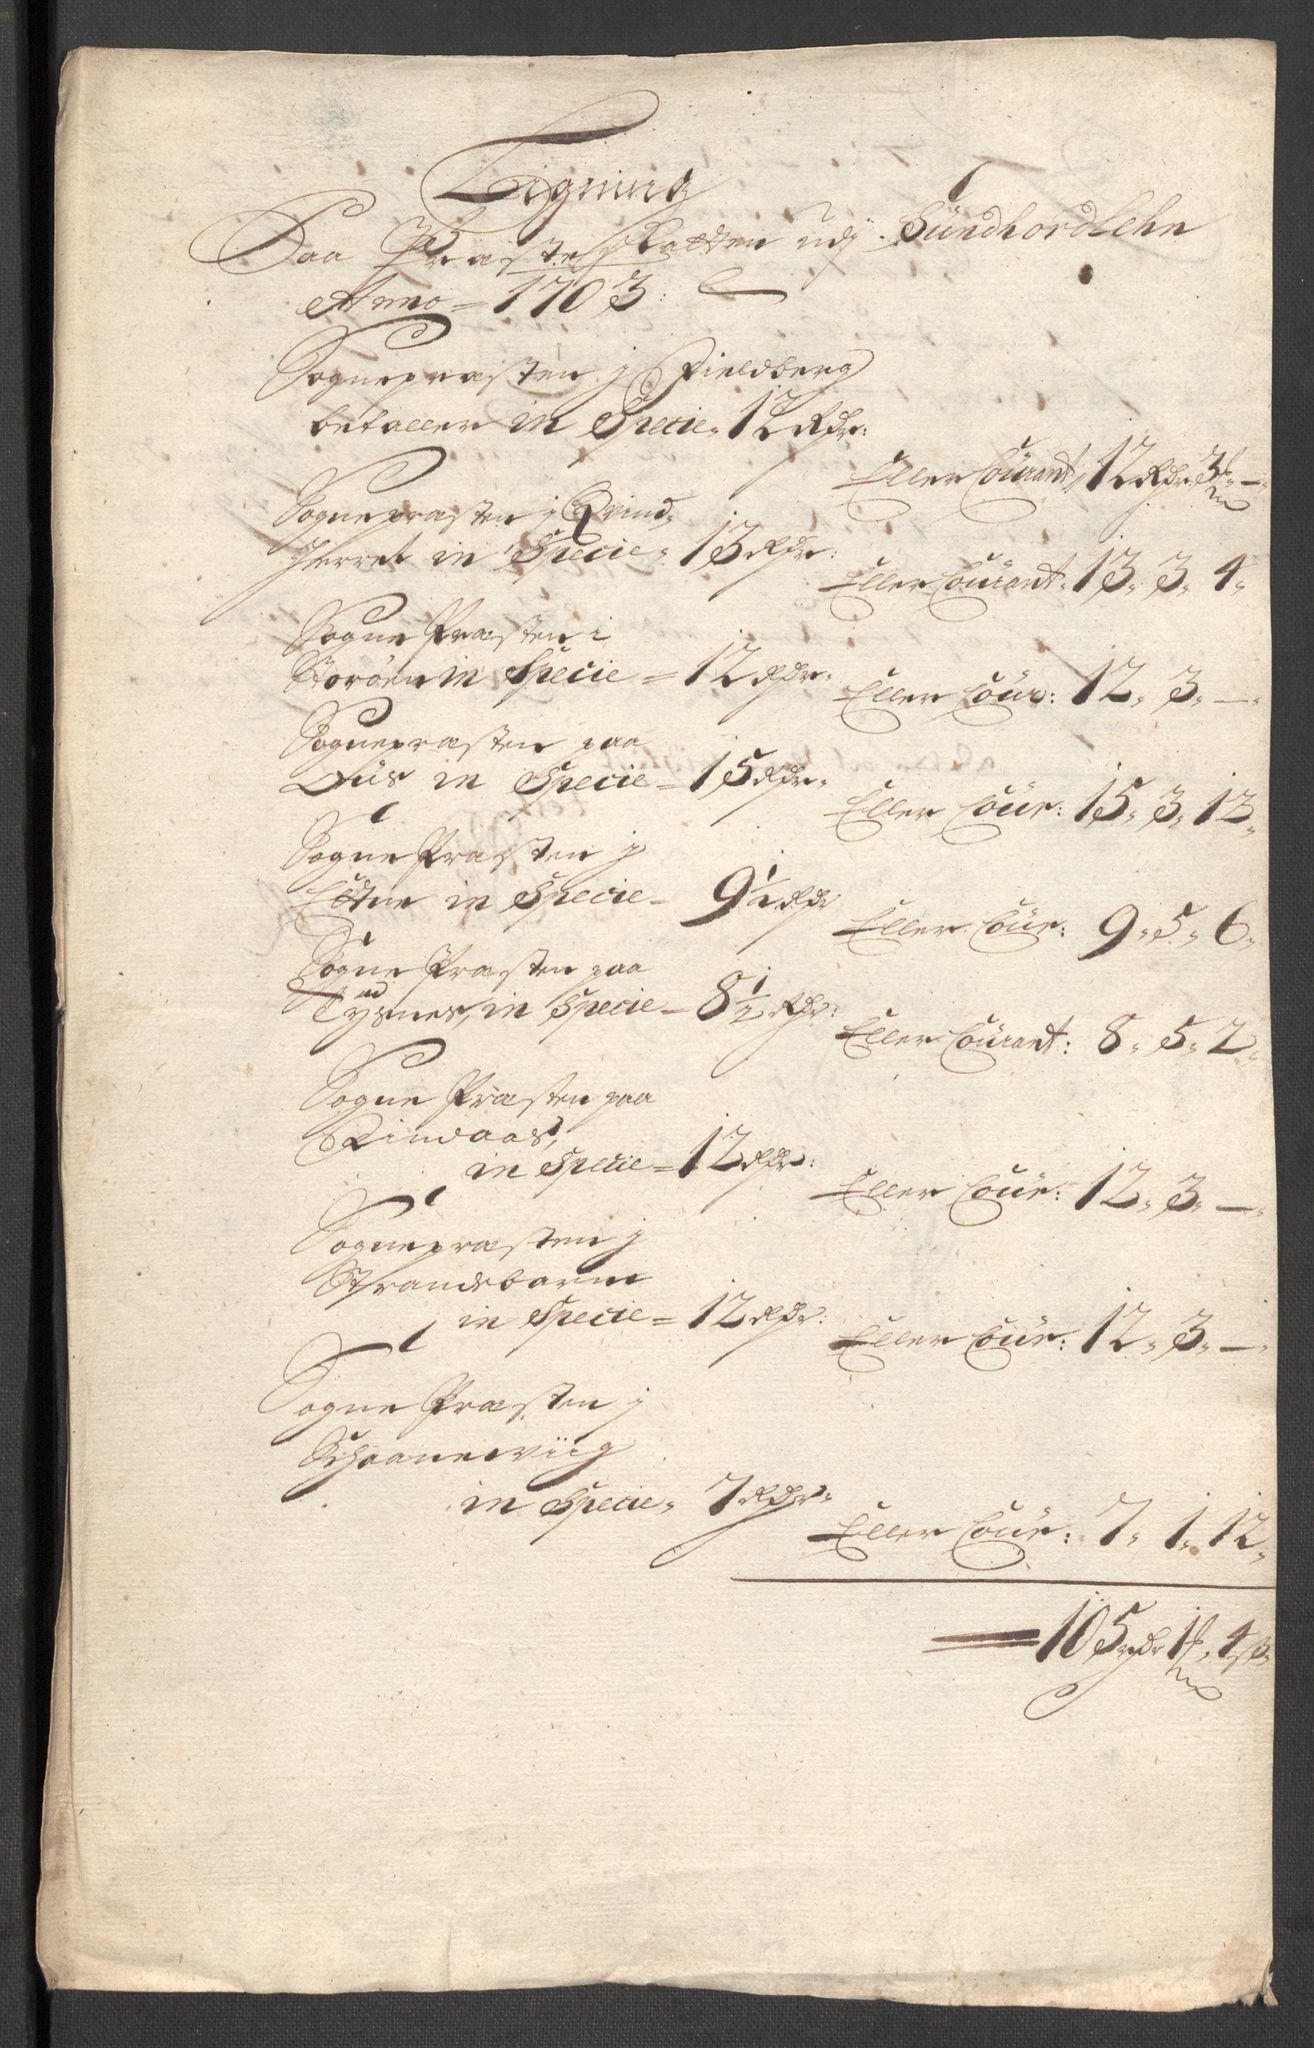 Ligning
Paa Præste skatten udj Sündhordlehn
Anno 1703
Sognepræsten j Fieldberg
betaller in Specie 12 Rdr:
Eller Courant 12 Rdr 3 –
Sognepræsten j Qvind-
herret in Specie 13 Rdr:
Eller Courant 13 3 4
Sogne Præsten i
Storöen in Specie = 12 Rdr
Eller Cour: 12 3 –
Sognepræsten paa
Füs in Specie = 15 Rdr
Eller Cour: 15 3 12
Sogne Præsten j
Etne in Specie 9½ Rdr
Eller Cour: 9 5 6
Sogne Præsten paa
Tysnes, in Specie 8½ Rdr:
Eller Courant: 8 5 2
Sogne Præsten paa
Findaas,
in Specie = 12 Rdr:
Eller Cour: 12 3 –
Sognepræsten j
Strandebarm
in Specie = 12 Rdr:
Eller Cour: 12 3 –
Sogne Præsten j
Schaanewiig
in Specie 7 Rdr
Eller Cour: 7 1 12
105 rdr 1 4 ß